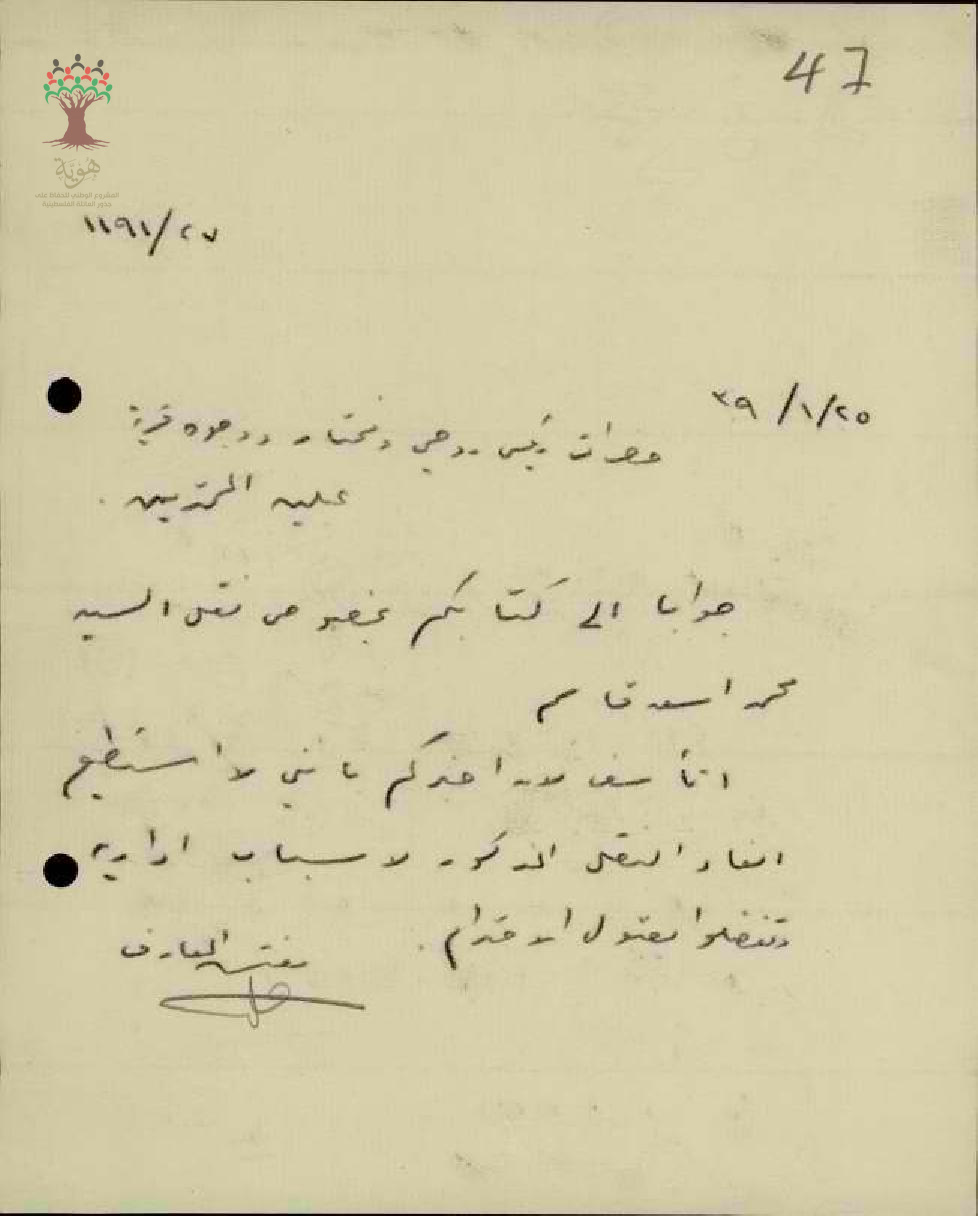 47
هوية
المشروع الوطني للحفاظ على
جذور العائلة الفلسطينية
١١٩١/٢٧
٣٩/١/٢٥
حضرات رئيس روحي ومختار ووجوه قرية
المحترمين .
جوابا الى كتابكم بخصوص نقل السيد
محمد اسعد قاسم
اتأسف لان اخبركم بانني لا استطيع
الغاء النقل المذكور لاسباب ادارية
وتفضلوا بقبول الاحترام .
مفتش المعارف